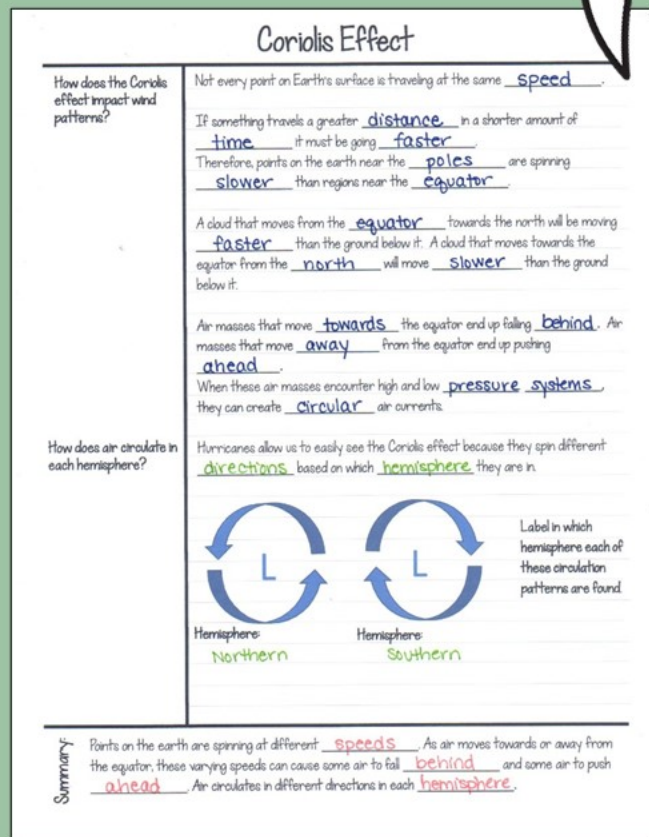 Coriolis Effect
How does the Coriolis
effect impact wind
patterns?
Not every point on Earth's surface is traveling at the same speed.
If something travels a greater distance in a shorter amount of
time it must be going faster.
Therefore, points on the earth near the poles are spinning
slower than regions near the equator.
A cloud that moves from the equator towards the north will be moving
faster than the ground below it. A cloud that moves towards the
equator from the north will move slower than the ground
below it.
Air masses that move towards the equator end up falling behind. Air
masses that move away from the equator end up pushing
ahead.
When these air masses encounter high and low pressure systems,
they can create circular air currents.
How does air circulate in
each hemisphere?
Hurricanes allow us to easily see the Coriolis effect because they spin different
directions based on which hemisphere they are in.
L
L
Label in which
hemisphere each of
these circulation
patterns are found.
Hemisphere:
Northern
Hemisphere:
Southern
Summary:
Points on the earth are spinning at different speeds. As air moves towards or away from
the equator, these varying speeds can cause some air to fall behind and some air to push
ahead. Air circulates in different directions in each hemisphere.